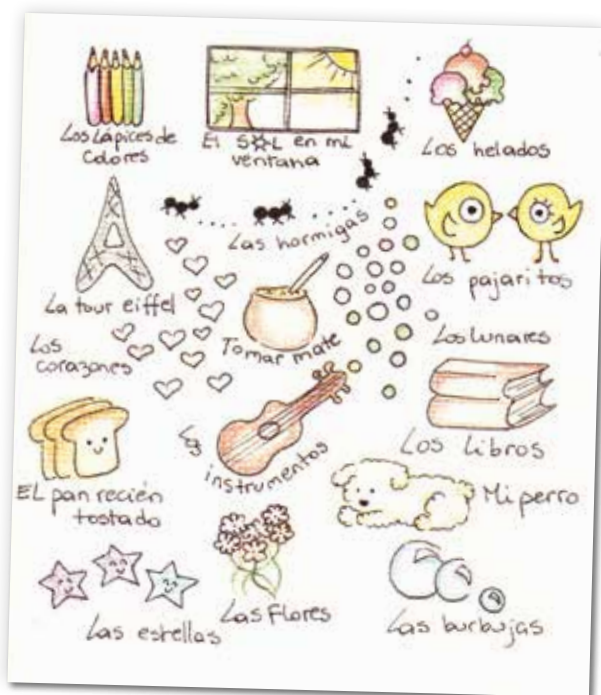 Los Lápices de
Colores
El SOL en mi
ventana
Los helados
Las hormigas
La tour eiffel
Los pajaritos
Tomar mate
Los
corazones
Los Lunares
Los instrumentos
Los Libros
EL pan recién
tostado
Mi perro
Las estrellas
Las Flores
Las burbujas